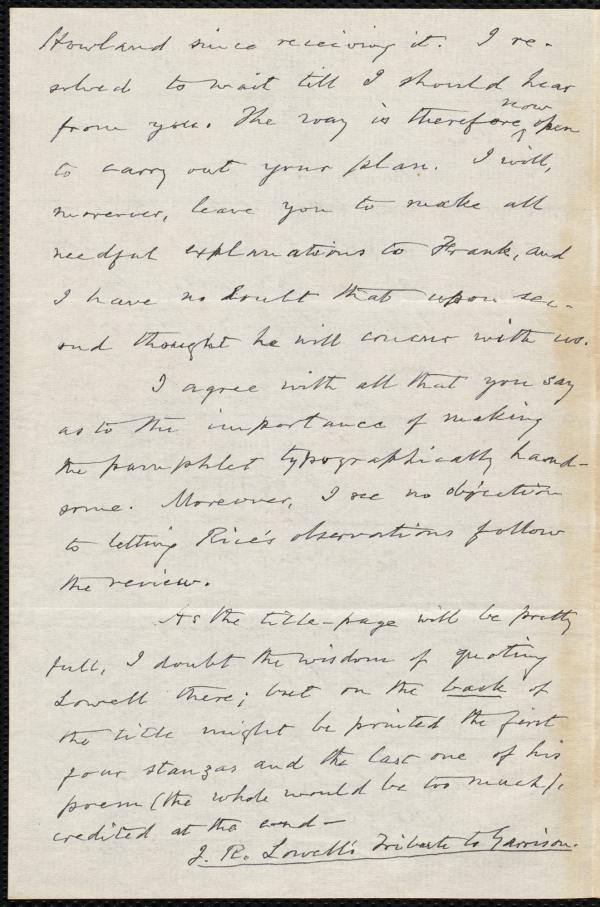 Howland since receiving it. I re-
solved to wait till I should hear
now
from you. The way is therefore ^ open
to carry out your plan. I will,
moreover, leave you to make all
needful explanations to Frank, and
I have no doubt that upon sec-
ond thought he will concur with us.
I agree with all that you say
as to the importance of making
the pamphlet typographically hand-
some. Moreover, I see no objection
to letting Rice's observations follow
the review.
As the title-page will be pretty
full, I doubt the wisdom of quoting
Lowell there; but on the back of
the title might be printed the first
four stanzas and the last one of his
poem (the whole would be too much),
credited at the end—
J. R. Lowell's Tribute to Garrison.